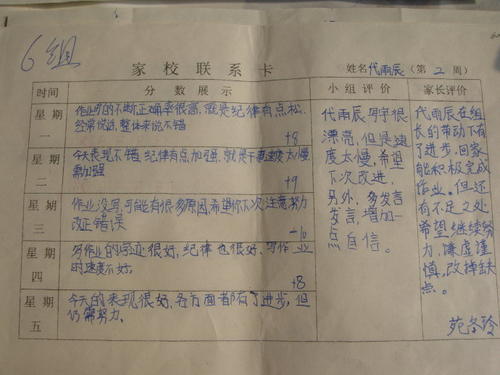 6组
家校联系卡
姓名代雨辰(第2周)
时间 分数展示 小组评价 家长评价
星期一
作业写的不断正确率很高,就是纪律有点松,
经常说话,整体来说不错
+8
星期二
今天表现不错,纪律有点加强,就是下裹速度太慢
需加强
+9
星期三
作业没写,可能有很多原因希望你下次注意努力
改正错误
-16
星期四
写作业的字迹很好,纪律也很好,写作业
的速度不好。
+8
星期五
今天的表现很好,各方面都有了进步,但
仍需努力。
代雨辰写字很
漂亮,但是速
度太慢,希望
下次改进,
另外,多发言
发言,增加一
点自信。
代雨辰在组
长的带动下有
了进步,回家
能积极完成
作业。但还
有不足之处
希望继续努
力,谦虚谨
慎,改掉缺
点。
苑冬玲